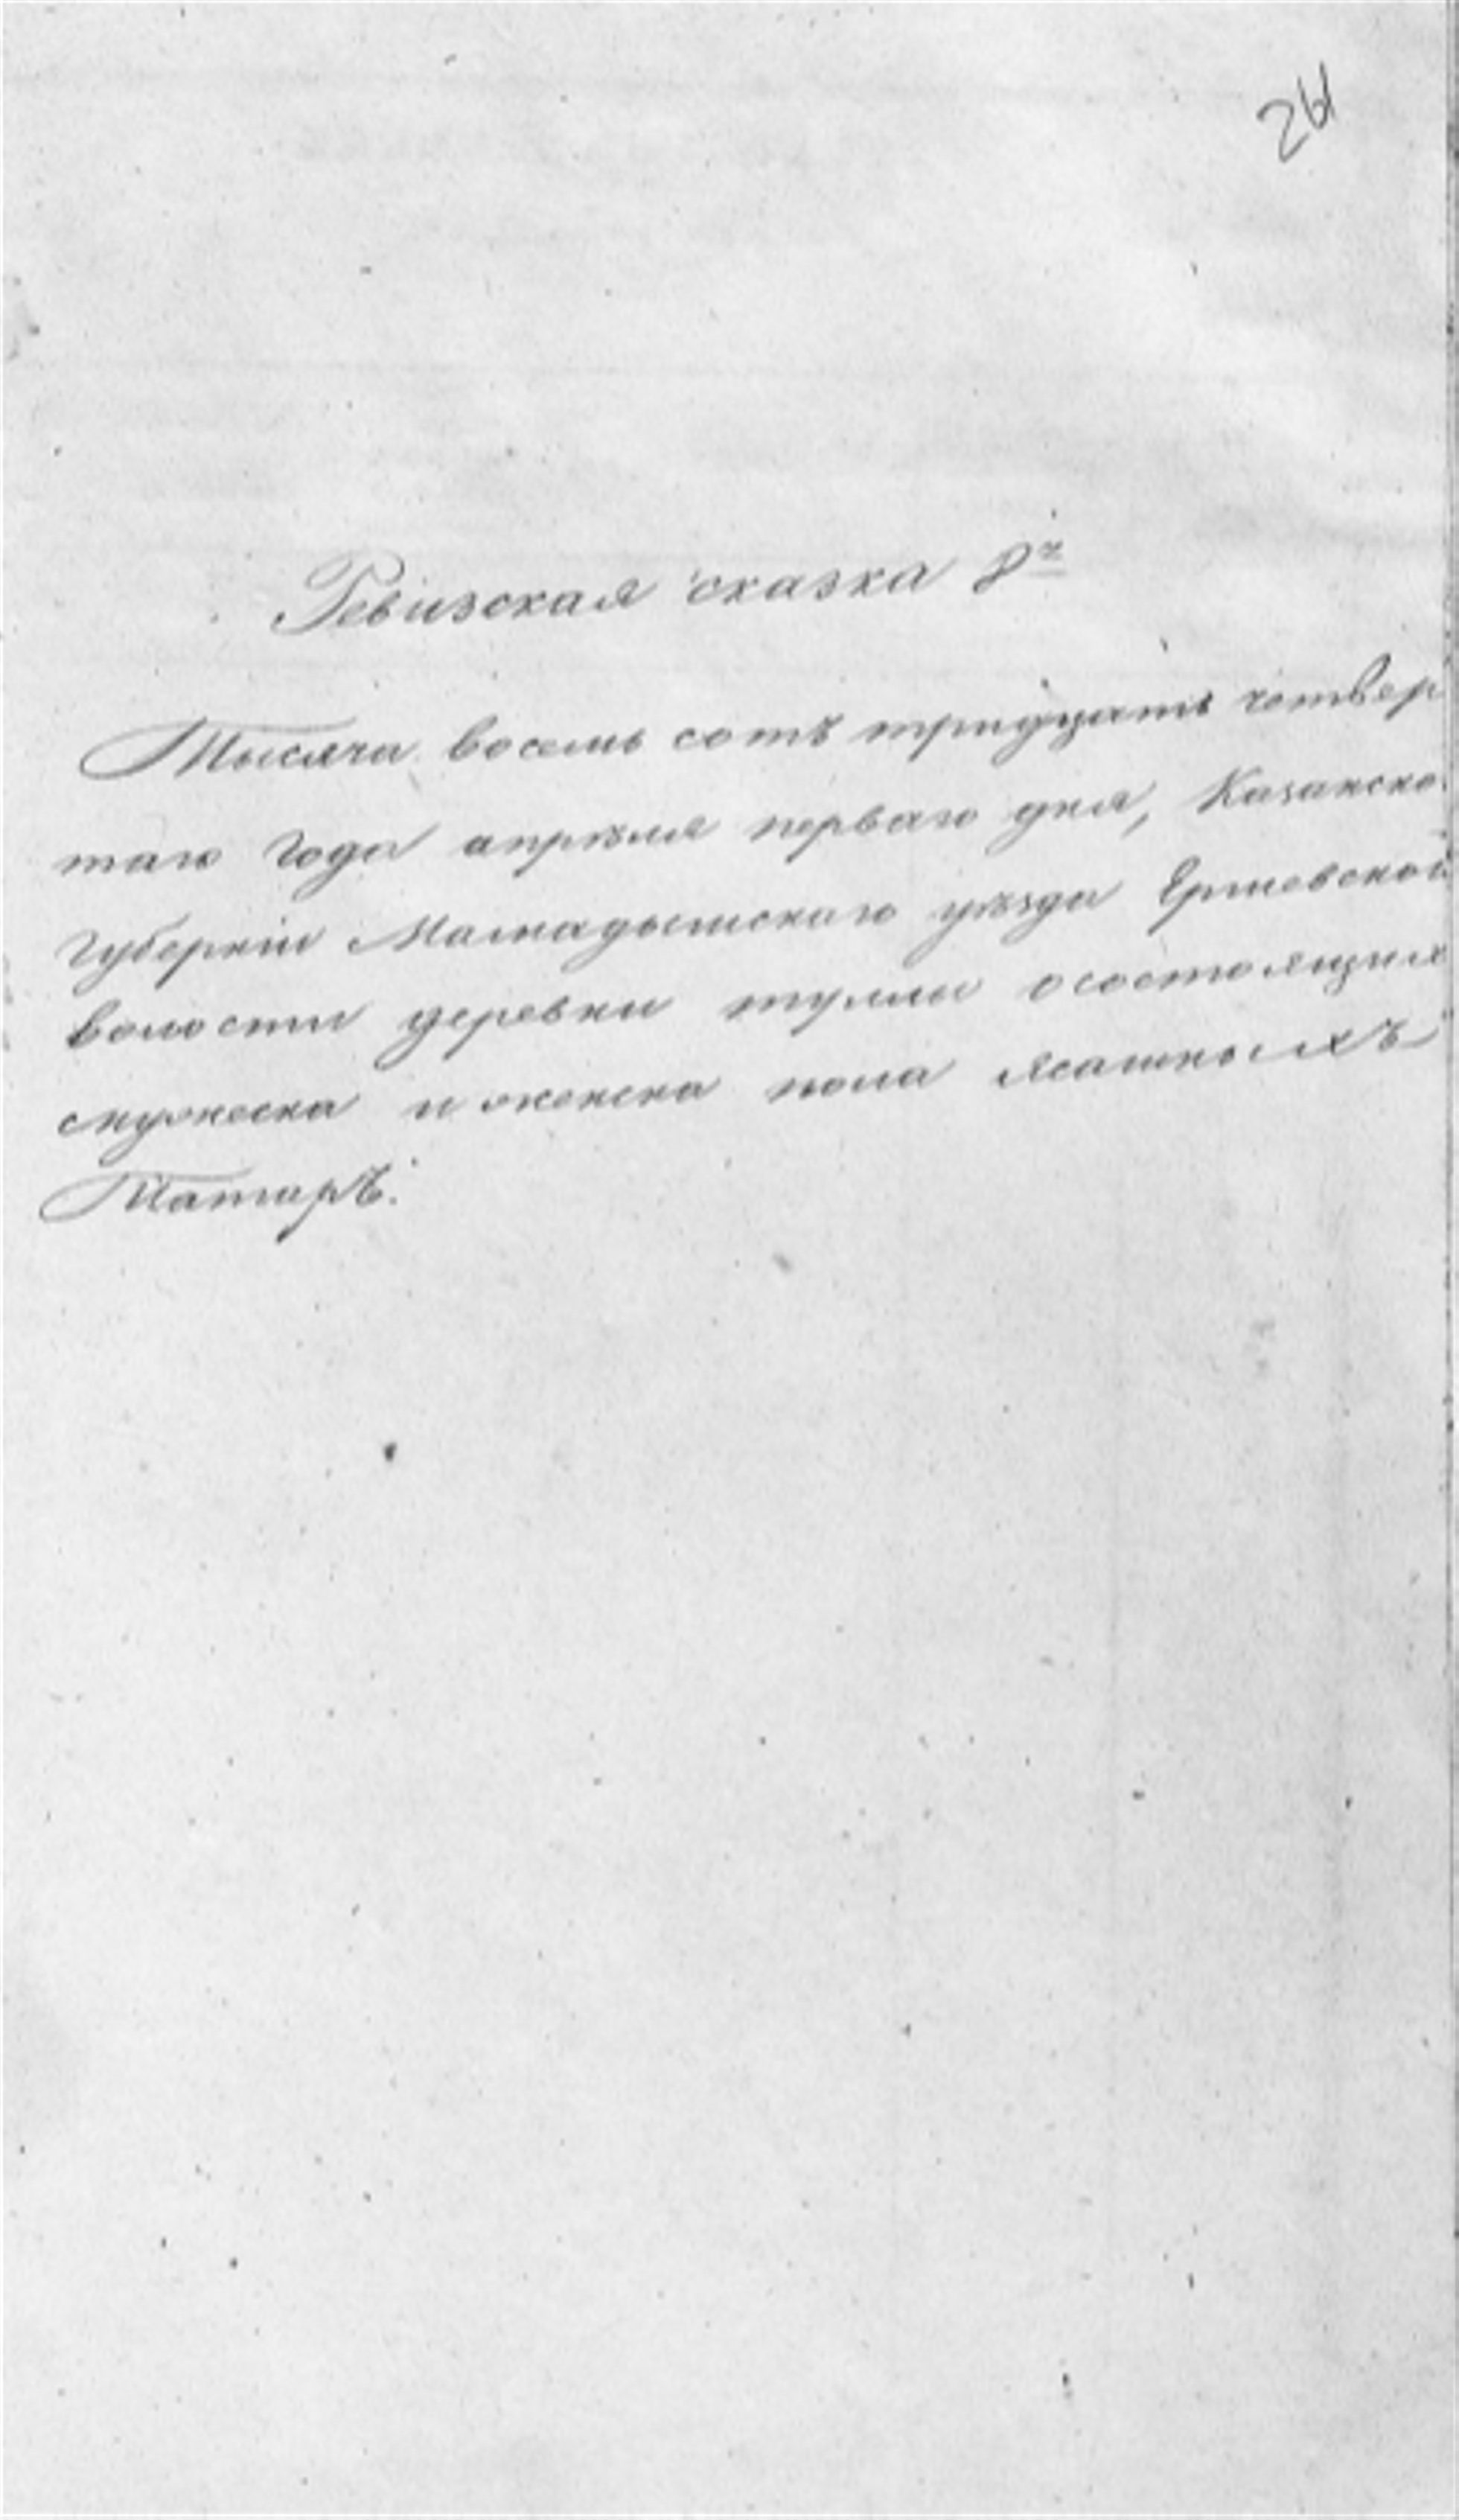 261
Ревизская сказка 8ᵃ
Тысяча восемь сотъ тридцать четвер
таго года апрѣля перваго дня, Казанско
губерніи Мамадышскаго уѣзда Ершовской
волости деревни тулы о состоящих
мужеска и женска пола ясашныхъ
Татаръ.